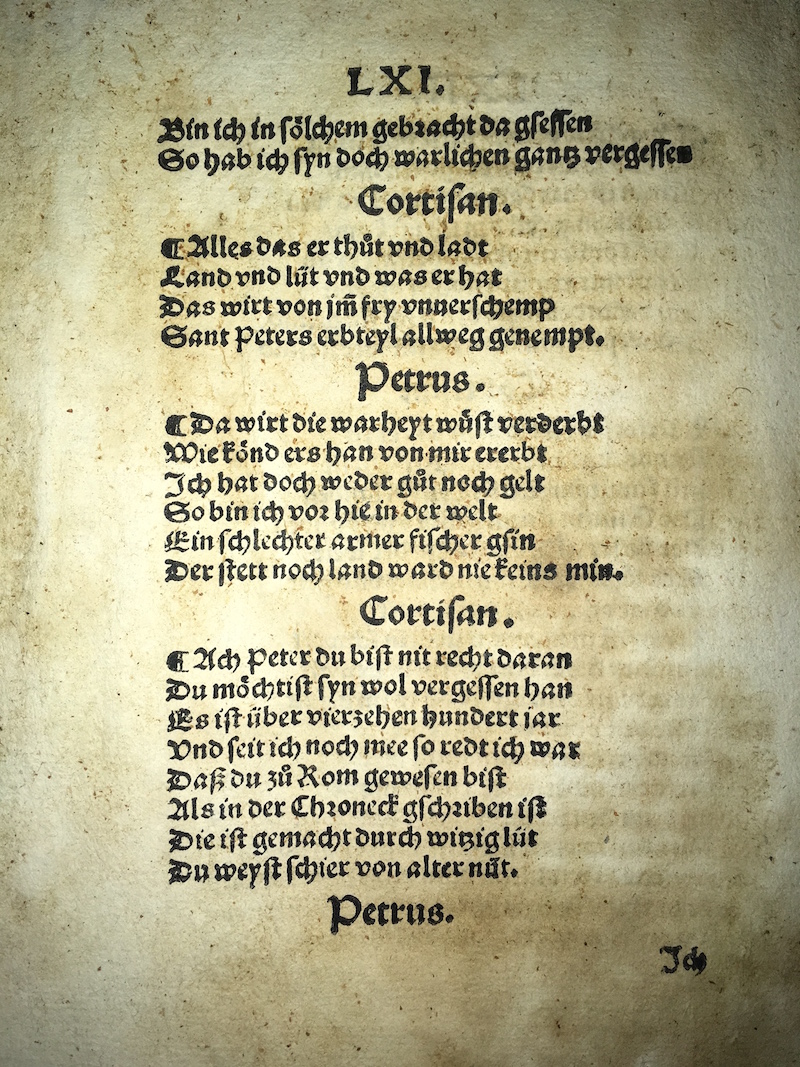 LXI.
Bin ich in sölchem gebracht da gsessen
So hab ich syn doch warlichen gantz vergessen
Cortisan.
¶ Alles das er thůt vnd ladt
Land vnd lüt vnd was er hat
Das wirt von jm̃ fry vnuerschemp
Sant Peters erbteyl allweg genempt.
Petrus.
¶ Da wirt die warheyt wůst verderbt
Wie könd ers han von mir ererbt
Ich hat doch weder gůt noch gelt
So bin ich vor hie in der welt
Ein schlechter armer fischer gsin
Der stett noch land ward nie keins min.
Cortisan.
¶ Ach Peter du bist nit recht daran
Du möchtist syn wol vergessen han
Es ist über vierzehen hundert jar
Vnd seit ich noch mee so redt ich war
Daß du zů Rom gewesen bist
Als in der Chroneck gschriben ist
Die ist gemacht durch witzig lüt
Du weyst schier von alter nüt.
Petrus.
Ich